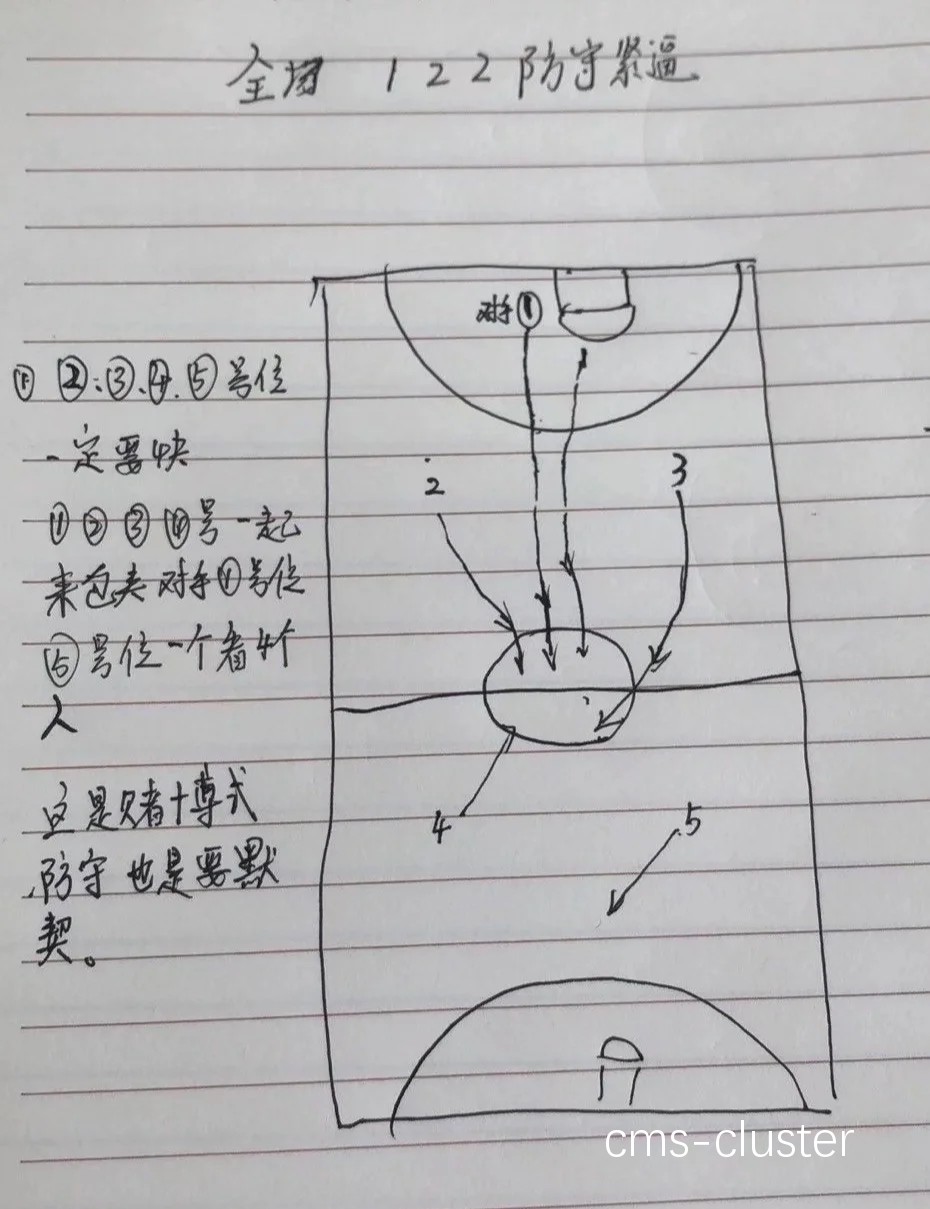 全场 1 2 2 防守紧逼
对手①
1
① ②、③、④、⑤号位
一定要快
2
3
① ② ③ ④号一起
来包夹对手①号位
⑤号位一个看4个
人
这是赌博式
防守也是要默
契。
4
5
cms-cluster